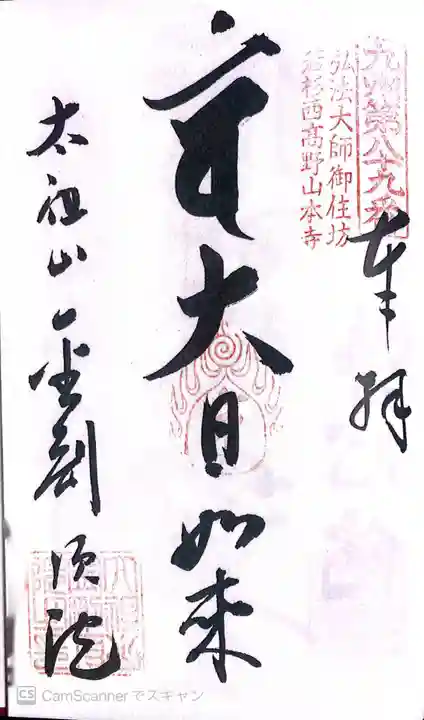 九州第八十九番
弘法大師御住坊
若杉西高野山本寺
奉拝
大日如来
太祖山 金剛頂院
CS CamScannerでスキャン